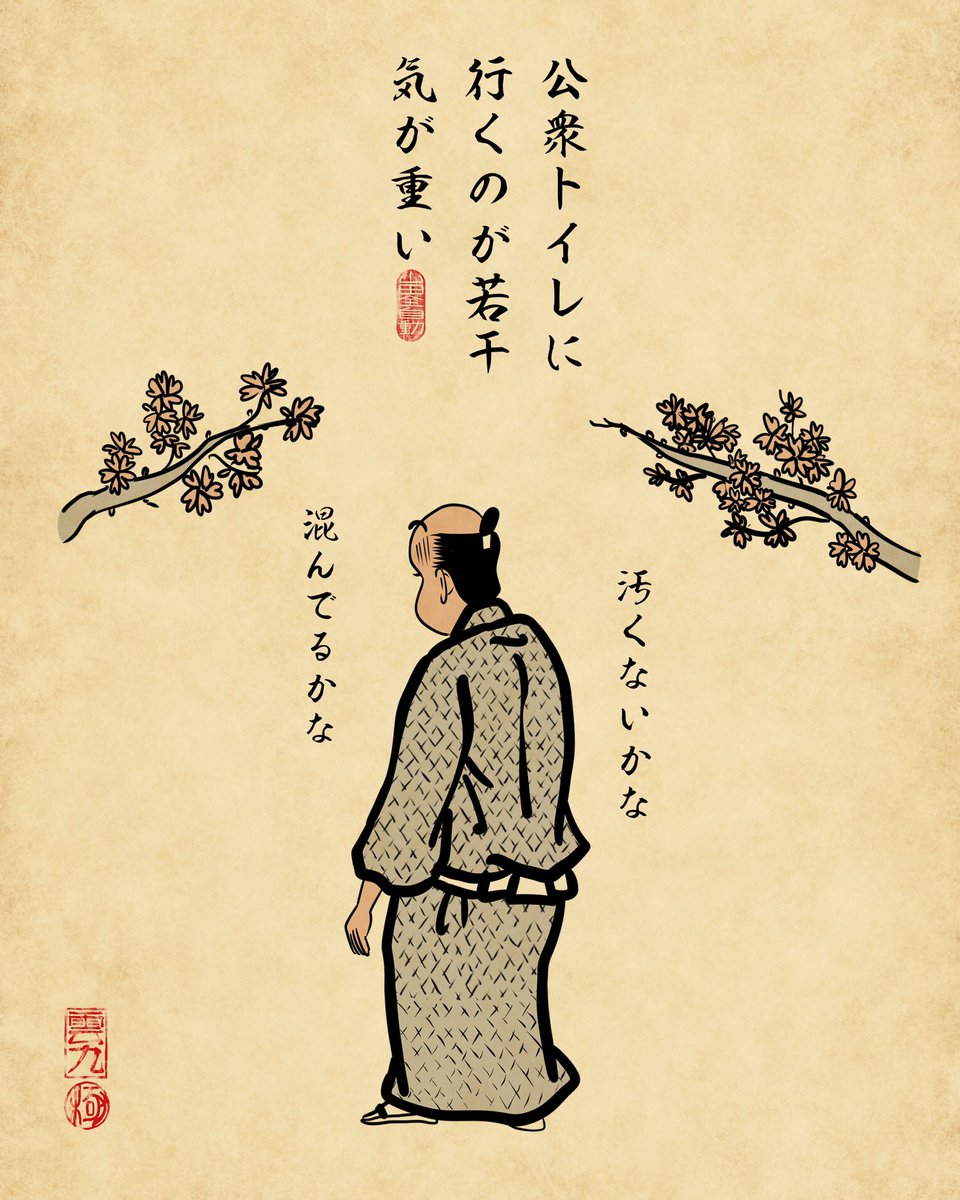 公衆トイレに
行くのが若干
気が重い
汚くないかな
混んでるかな